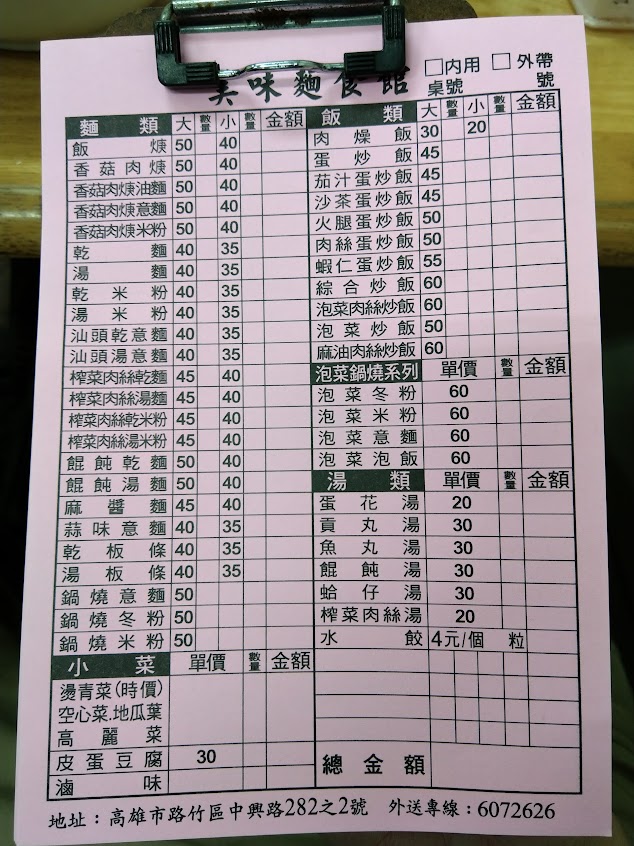 美味麵食館 □內用 □外帶
桌號 號
麵類 大 數量 小 數量 金額
飯焿 50 40
香菇肉焿 50 40
香菇肉焿油麵 50 40
香菇肉焿意麵 50 40
香菇肉焿米粉 50 40
乾麵 40 35
湯麵 40 35
乾米粉 40 35
湯米粉 40 35
汕頭乾意麵 40 40
汕頭湯意麵 40 40
榨菜肉絲乾麵 45 40
榨菜肉絲湯麵 45 40
榨菜肉絲乾米粉 45 40
榨菜肉絲湯米粉 45 40
餛飩乾麵 50 40
餛飩湯麵 50 40
麻醬麵 45 40
蒜味意麵 40 35
乾板條 40 35
湯板條 40 35
鍋燒意麵 50
鍋燒冬粉 50
鍋燒米粉 50
小菜 單價 數量 金額
燙青菜(時價)
空心菜.地瓜葉
高麗菜
皮蛋豆腐 30
滷味
飯類 大 數量 小 數量 金額
肉燥飯 30 20
蛋炒飯 45
茄汁蛋炒飯 45
沙茶蛋炒飯 45
火腿蛋炒飯 50
肉絲蛋炒飯 50
蝦仁蛋炒飯 55
綜合炒飯 60
泡菜肉絲炒飯 60
泡菜炒飯 50
麻油肉絲炒飯 60
泡菜鍋燒系列 單價 數量 金額
泡菜冬粉 60
泡菜米粉 60
泡菜意麵 60
泡菜泡飯 60
湯類 單價 數量 金額
蛋花湯 20
貢丸湯 30
魚丸湯 30
餛飩湯 30
蛤仔湯 30
榨菜肉絲湯 20
水餃 4元/個 粒
總金額
地址：高雄市路竹區中興路282之2號 外送專線：6072626